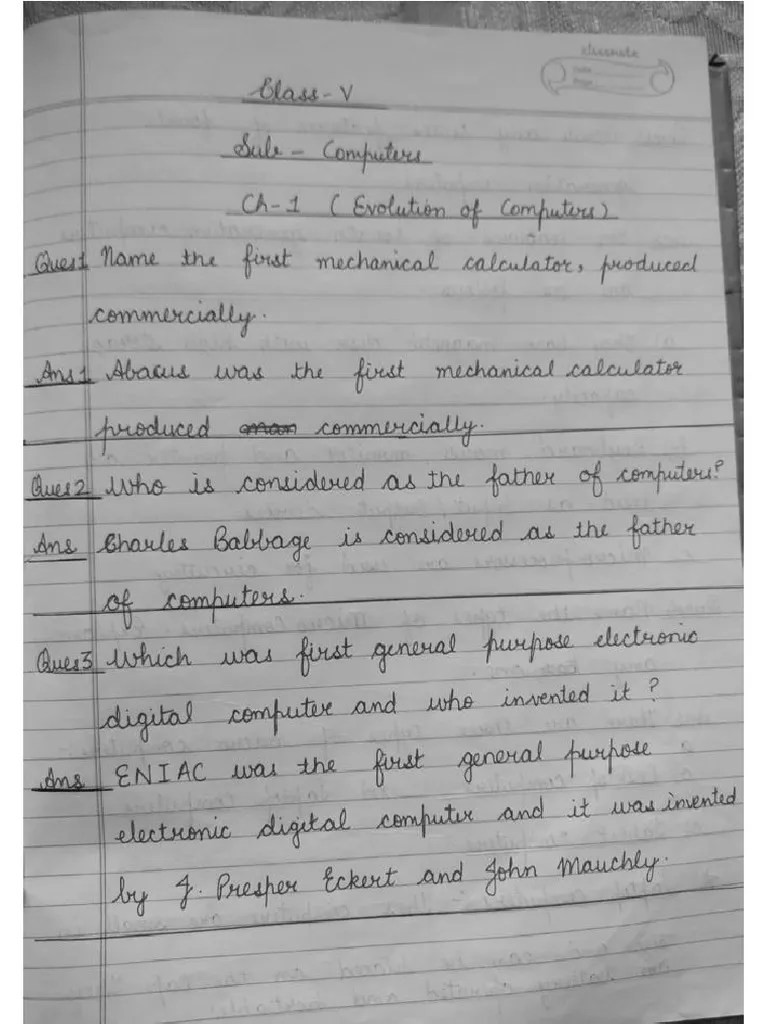 classmate
Date
Page
Class - V
Sub - Computers
Ch-1 ( Evolution of Computers)
Ques1 Name the first mechanical calculator, produced
commercially.
Ans1 Abacus was the first mechanical calculator
produced commercially.
Ques2 Who is considered as the father of computers?
Ans Charles Babbage is considered as the father
of computers.
Ques3 Which was first general purpose electronic
digital computer and who invented it?
Ans ENIAC was the first general purpose
electronic digital computer and it was invented
by J. Presper Eckert and John Mauchly.